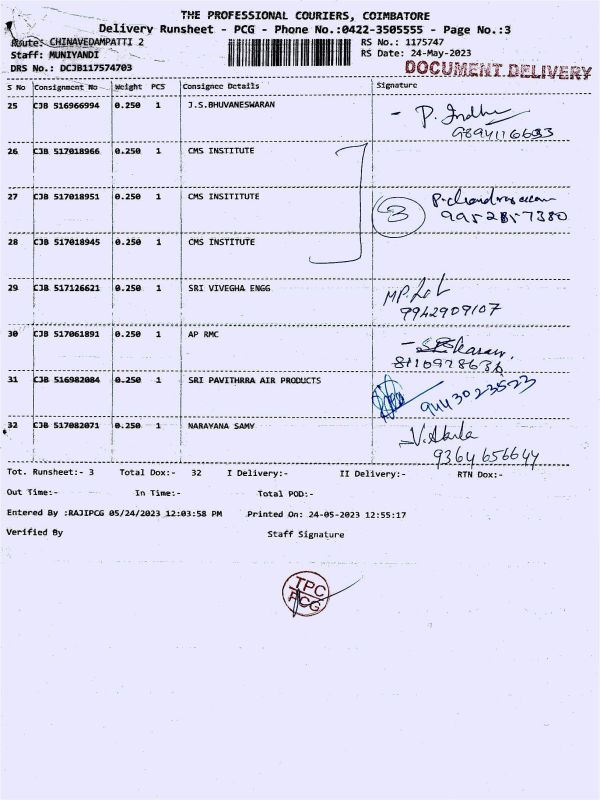 THE PROFESSIONAL COURIERS, COIMBATORE
Delivery Runsheet - PCG - Phone No.:0422-3505555 - Page No.:3
Route: CHINAVEDAMPATTI 2 RS No.: 1175747
Staff: MUNIYANDI RS Date: 24-May-2023
DRS No.: DCJB117574703 DOCUMENT DELIVERY
S No Consignment No Weight PCS Consignee Details Signature
25 CJB 516966994 0.250 1 J.S.BHUVANESWARAN - P. Indhu
9894116633
26 CJB 517018966 0.250 1 CMS INSTITUTE
27 CJB 517018951 0.250 1 CMS INSITITUTE 3 P.chandrasekaran
9952857380
28 CJB 517018945 0.250 1 CMS INSTITUTE
29 CJB 517126621 0.250 1 SRI VIVEGHA ENGG
9942909107
30 CJB 517061891 0.250 1 AP RMC
8110978636
31 CJB 516982084 0.250 1 SRI PAVITHRRA AIR PRODUCTS 9443023523
32 CJB 517082071 0.250 1 NARAYANA SAMY V.Akila
9364656644
Tot. Runsheet:- 3 Total Dox:- 32 I Delivery:- II Delivery:- RTN Dox:-
Out Time:- In Time:- Total POD:-
Entered By :RAJIPCG 05/24/2023 12:03:58 PM Printed On: 24-05-2023 12:55:17
Verified By Staff Signature
TPC
PCG